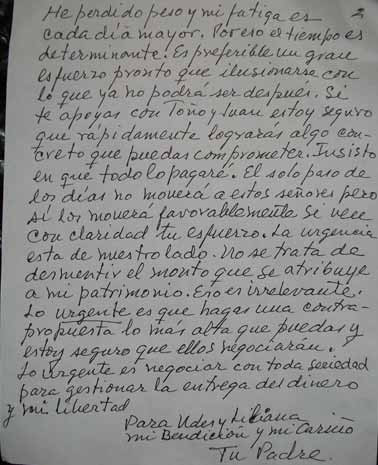 2
He perdido peso y mi fatiga es
cada día mayor. Por eso el tiempo es
determinante. Es preferible un gran
esfuerzo pronto que ilusionarse con
lo que ya no podrá ser despues. Si
te apoyas con Toño y Juan estoy seguro
que rápidamente lograrás algo con-
creto que puedas comprometer. Insisto
en que todo lo pagaré. El solo paso de
los días no moverá a estos señores pero
sí los moverá favorablemente si ven
con claridad tu esfuerzo. La urgencia
esta de nuestro lado. No se trata de
desmentir el monto que se atribuye
a mi patrimonio. Eso es irrelevante.
Lo urgente es que hagas una contra-
propuesta lo mas alta que puedas y
estoy seguro que ellos negociarán.
Lo urgente es negociar con toda seriedad
para gestionar la entrega del dinero
y mi libertad
Para Udes y Liliana
mi Bendición y mi Cariño
Tu Padre.